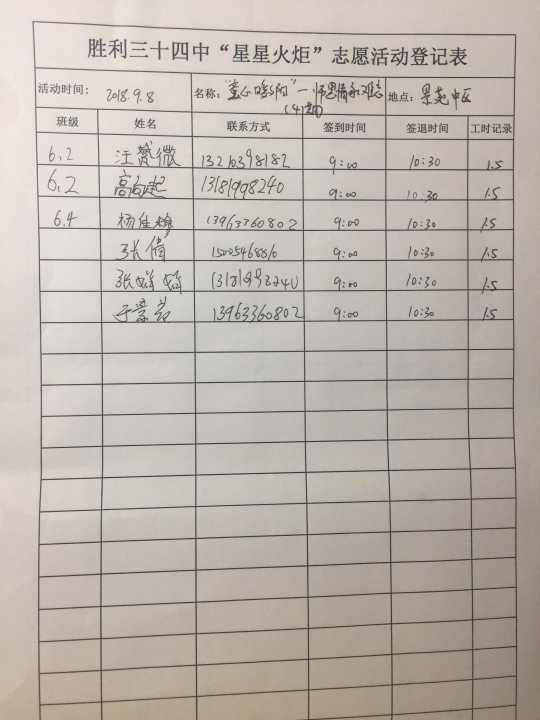 胜利三十四中“星星火炬”志愿活动登记表
活动时间： 2018.9.8 名称： “童心 ”一师恩情永难忘 地点： 景苑中区
（4小时）
班级 姓名 联系方式 签到时间 签退时间 工时记录
6.2 汪赞微 13210398182 9:00 10:30 1.5
6.2 高 起 13181998240 9:00 10:30 1.5
6.4 杨佳 13963360802 9:00 10:30 1.5
张倩 15005468810 9:00 10:30 1.5
张 13181998240 9:00 10:30 1.5
于景岩 13963360802 9:00 10:30 1.5